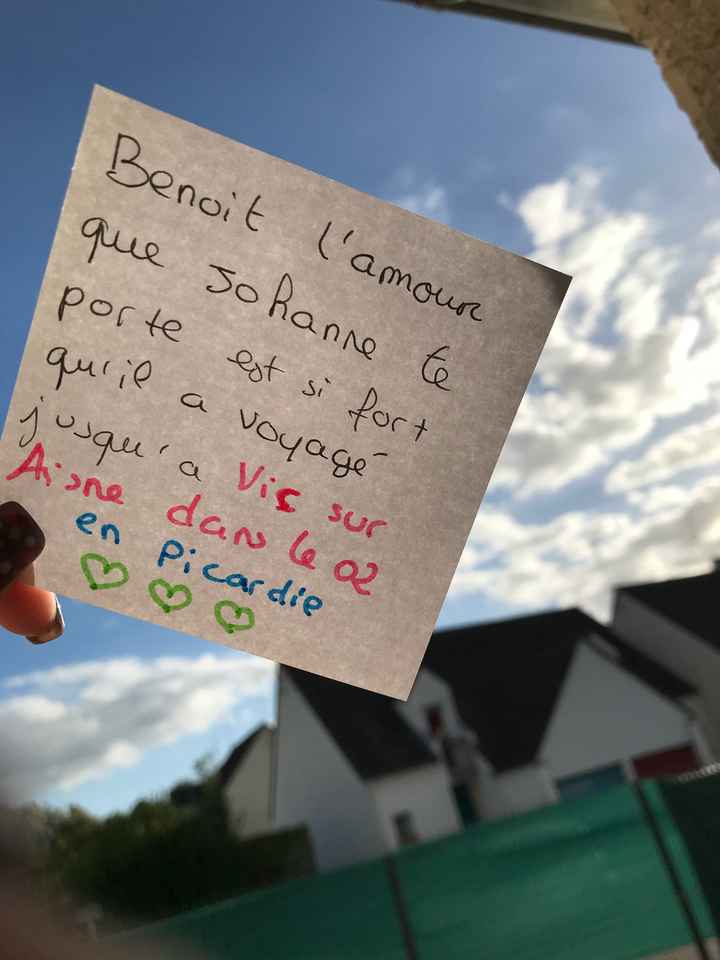 Benoit l'amour
que Johanne te
porte est si fort
qu'il a voyagé
jusqu'a Vic sur
Aisne dans le 02
en Picardie